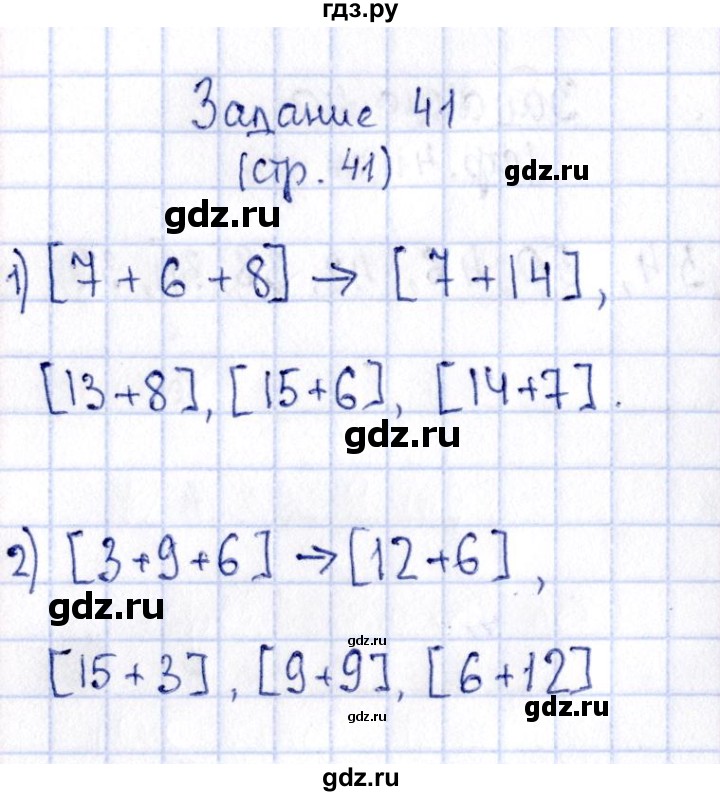 гдз.ру
Задание 41
(стр. 41)
gdz.ru
gdz.ru
1) [7 + 6 + 8] → [7 + 14],
[13 + 8], [15 + 6], [14 + 7].
gdz.ru
2) [3 + 9 + 6] → [12 + 6],
gdz.ru
gdz.ru
[15 + 3], [9 + 9], [6 + 12]
gdz.ru
gdz.ru
gdz.ru